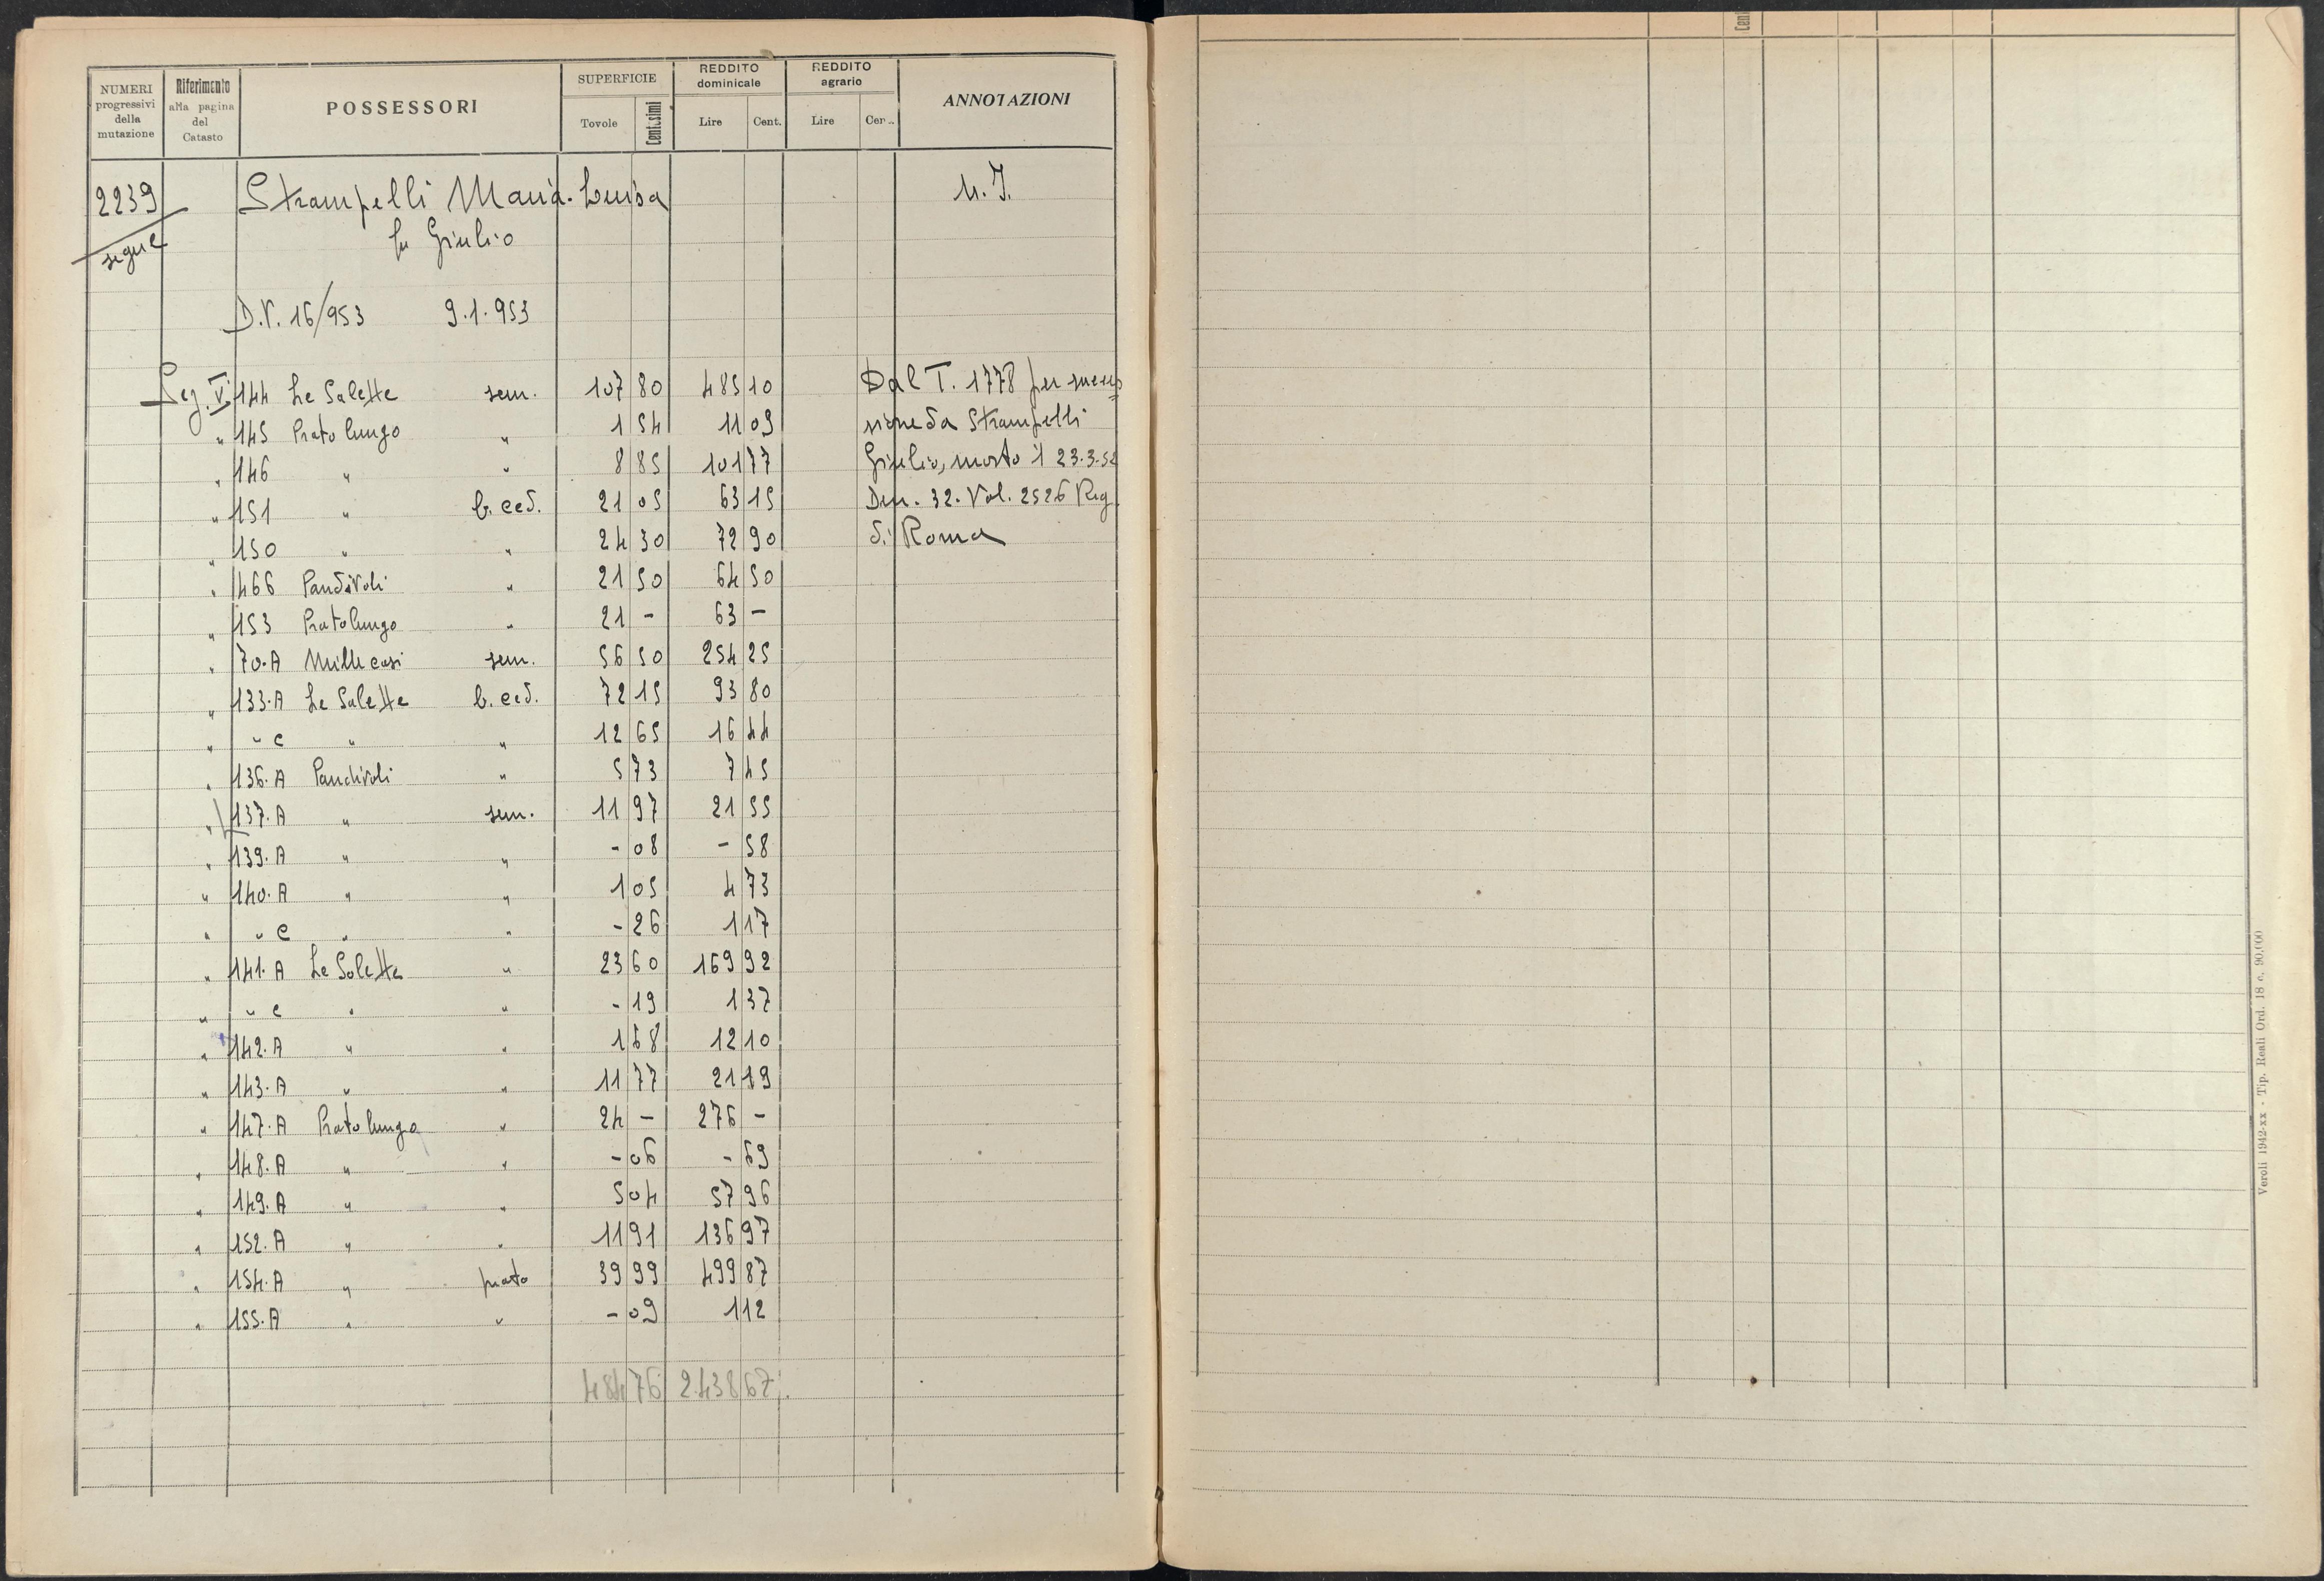 NUMERI progressivi della mutazione | Riferimento alla pagina del Catasto | POSSESSORI | SUPERFICIE Tovole Centesimi | REDDITO dominicale Lire Cent. | REDDITO agrario Lire Cen.. | ANNOTAZIONI
2239 Strampelli Maria-Luisa
segue fu Giulio
D.V. 16/953 9.1.953
Sez. V. 144 Le Salette sem. 107 80 485 10 Dal T. 1778 per succes
" 145 Prato lungo " 1 54 11 09 sione da Strampelli
" 146 " " 8 85 101 77 Giulio, morto il 23.3.52
" 151 " b. ced. 21 05 63 15 Den. 32. Vol. 2526 Reg.
" 150 " " 24 30 72 90 di Roma
" 466 Pandivoli " 21 50 64 50
" 153 Pratolungo " 21 - 63 -
" 70.A Mille casi sem. 56 50 254 25
" 133.A Le Salette b. ced. 72 15 93 80
" " c " " 12 65 16 44
" 136.A Pandivoli " 5 73 7 45
" 137.A " sem. 11 97 21 55
" 139.A " " - 08 - 58
" 140.A " " 1 05 4 73
" " c " " - 26 1 17
" 141.A Le Solette " 23 60 169 92
" " c " " - 19 1 37
" 142.A " " 1 68 12 10
" 143.A " " 11 77 21 19
" 147.A Prato lungo " 24 - 276 -
" 148.A " " - 06 - 69
" 149.A " " 5 04 57 96
" 152.A " " 11 91 136 97
" 154.A " prato 39 99 499 87
" 155.A " " - 09 1 12
484 76 2438 67
Cent
Veroli 1942-xx - Tip. Reali Ord. 18 c. 90,000